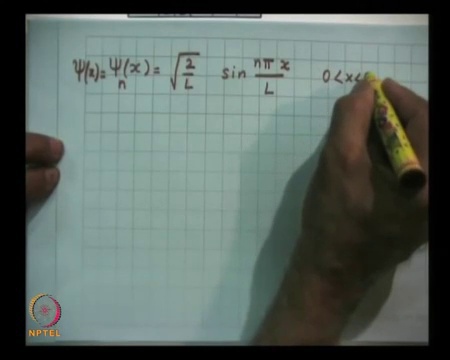 ψ(x) = ψn(x) = √(2/L) sin nπx/L 0<x<
NPTEL